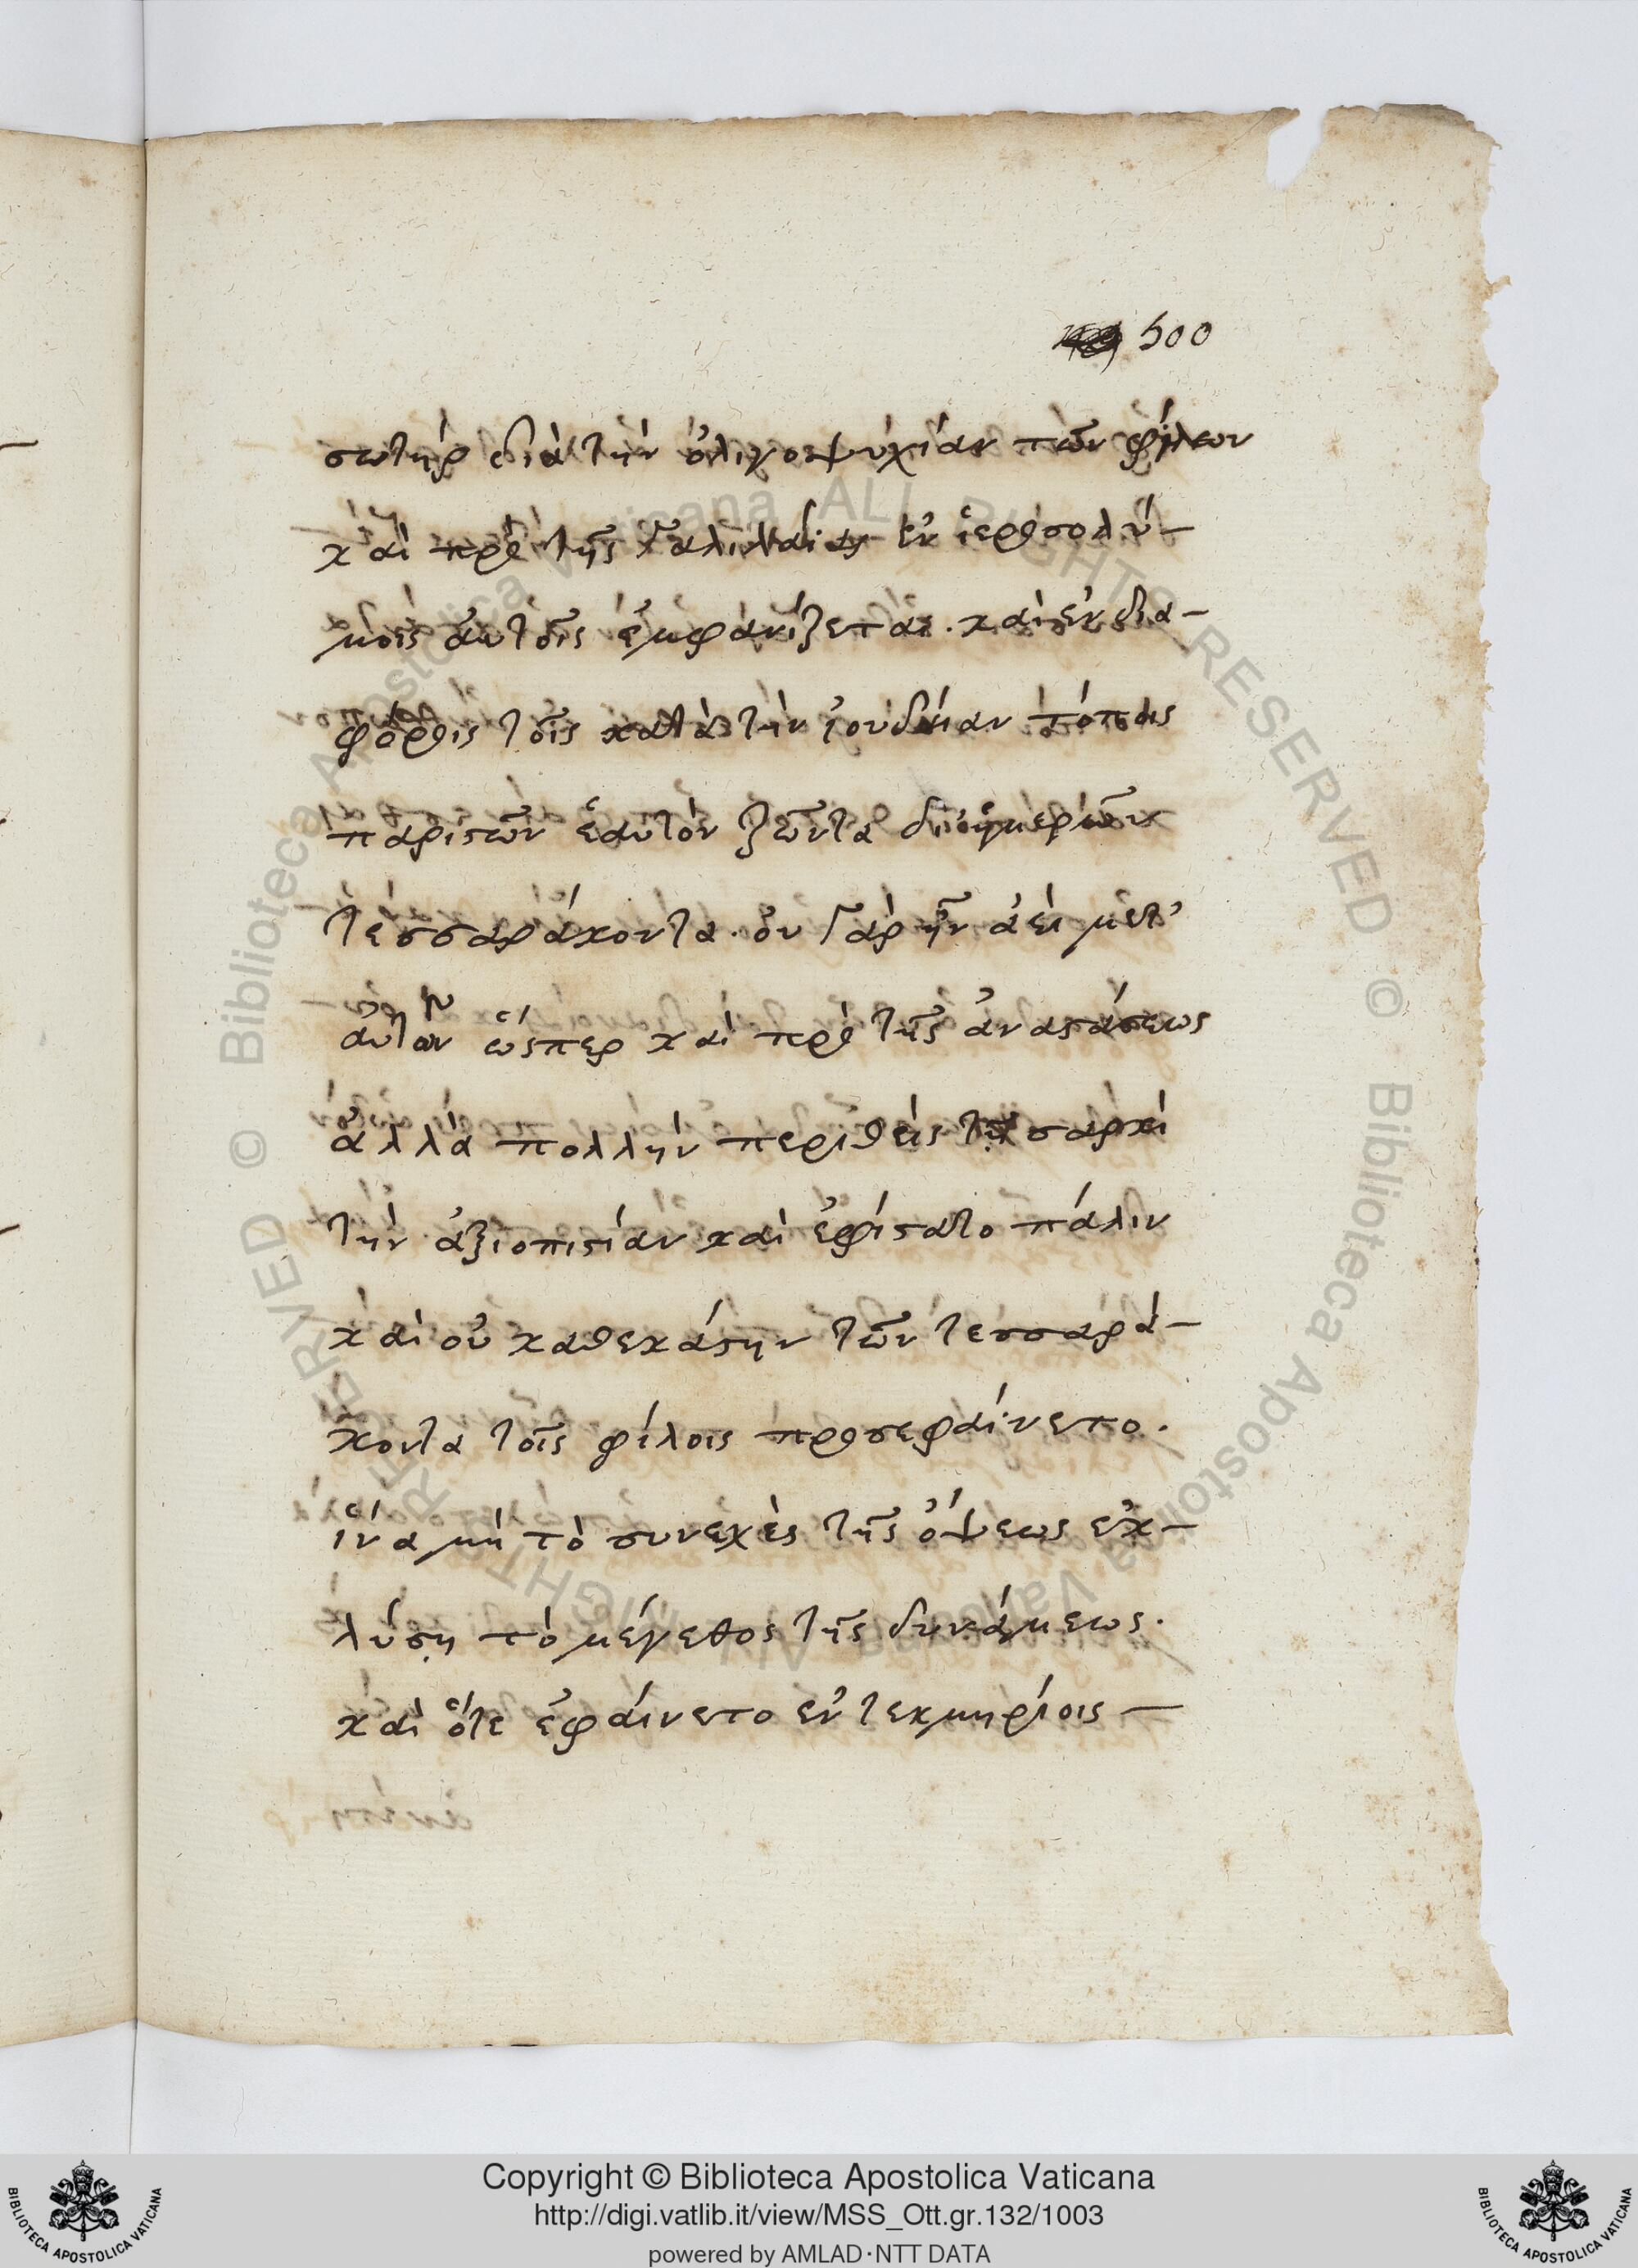 500
σωτὴρ διὰ τὴν ὀλιγοψυχίαν τῶν φίλων
καὶ πρὸ τῆς Γαλιλαίας ἐν ἱεροσολύ-
μοις αὐτοῖς ἐμφανίζεται. καὶ ἐν δια-
φόροις τοῖς κατὰ τὴν ἰουδαίαν τόποις
παριστῶν ἑαυτὸν ζῶντα δι' ἡμερῶν
τεσσαράκοντα. οὐ γὰρ ἦν ἀεὶ μετ'
αὐτῶν ὥσπερ καὶ πρὸ τῆς ἀναστάσεως
ἀλλὰ πολλὴν περιθεὶς τῇ σαρκὶ
τὴν ἀξιοπιστίαν καὶ ἐφίστατο πάλιν
καὶ οὐ καθεκάστην τῶν τεσσαρά-
κοντα τοῖς φίλοις προσεφαίνετο.
ἵνα μὴ τὸ συνεχὲς τῆς ὄψεως ἐκ-
λύσῃ τὸ μέγεθος τῆς δυνάμεως.
καὶ ὅτε ἐφαίνετο ἐν τεκμηρίοις —
Copyright © Biblioteca Apostolica Vaticana
http://digi.vatlib.it/view/MSS_Ott.gr.132/1003
powered by AMLAD·NTT DATA
BIBLIOTECA APOSTOLICA VATICANA
BIBLIOTECA APOSTOLICA VATICANA
© Biblioteca Apostolica Vaticana ALL RIGHTS RESERVED © Biblioteca Apostolica Vaticana ALL RIGHTS RESERVED